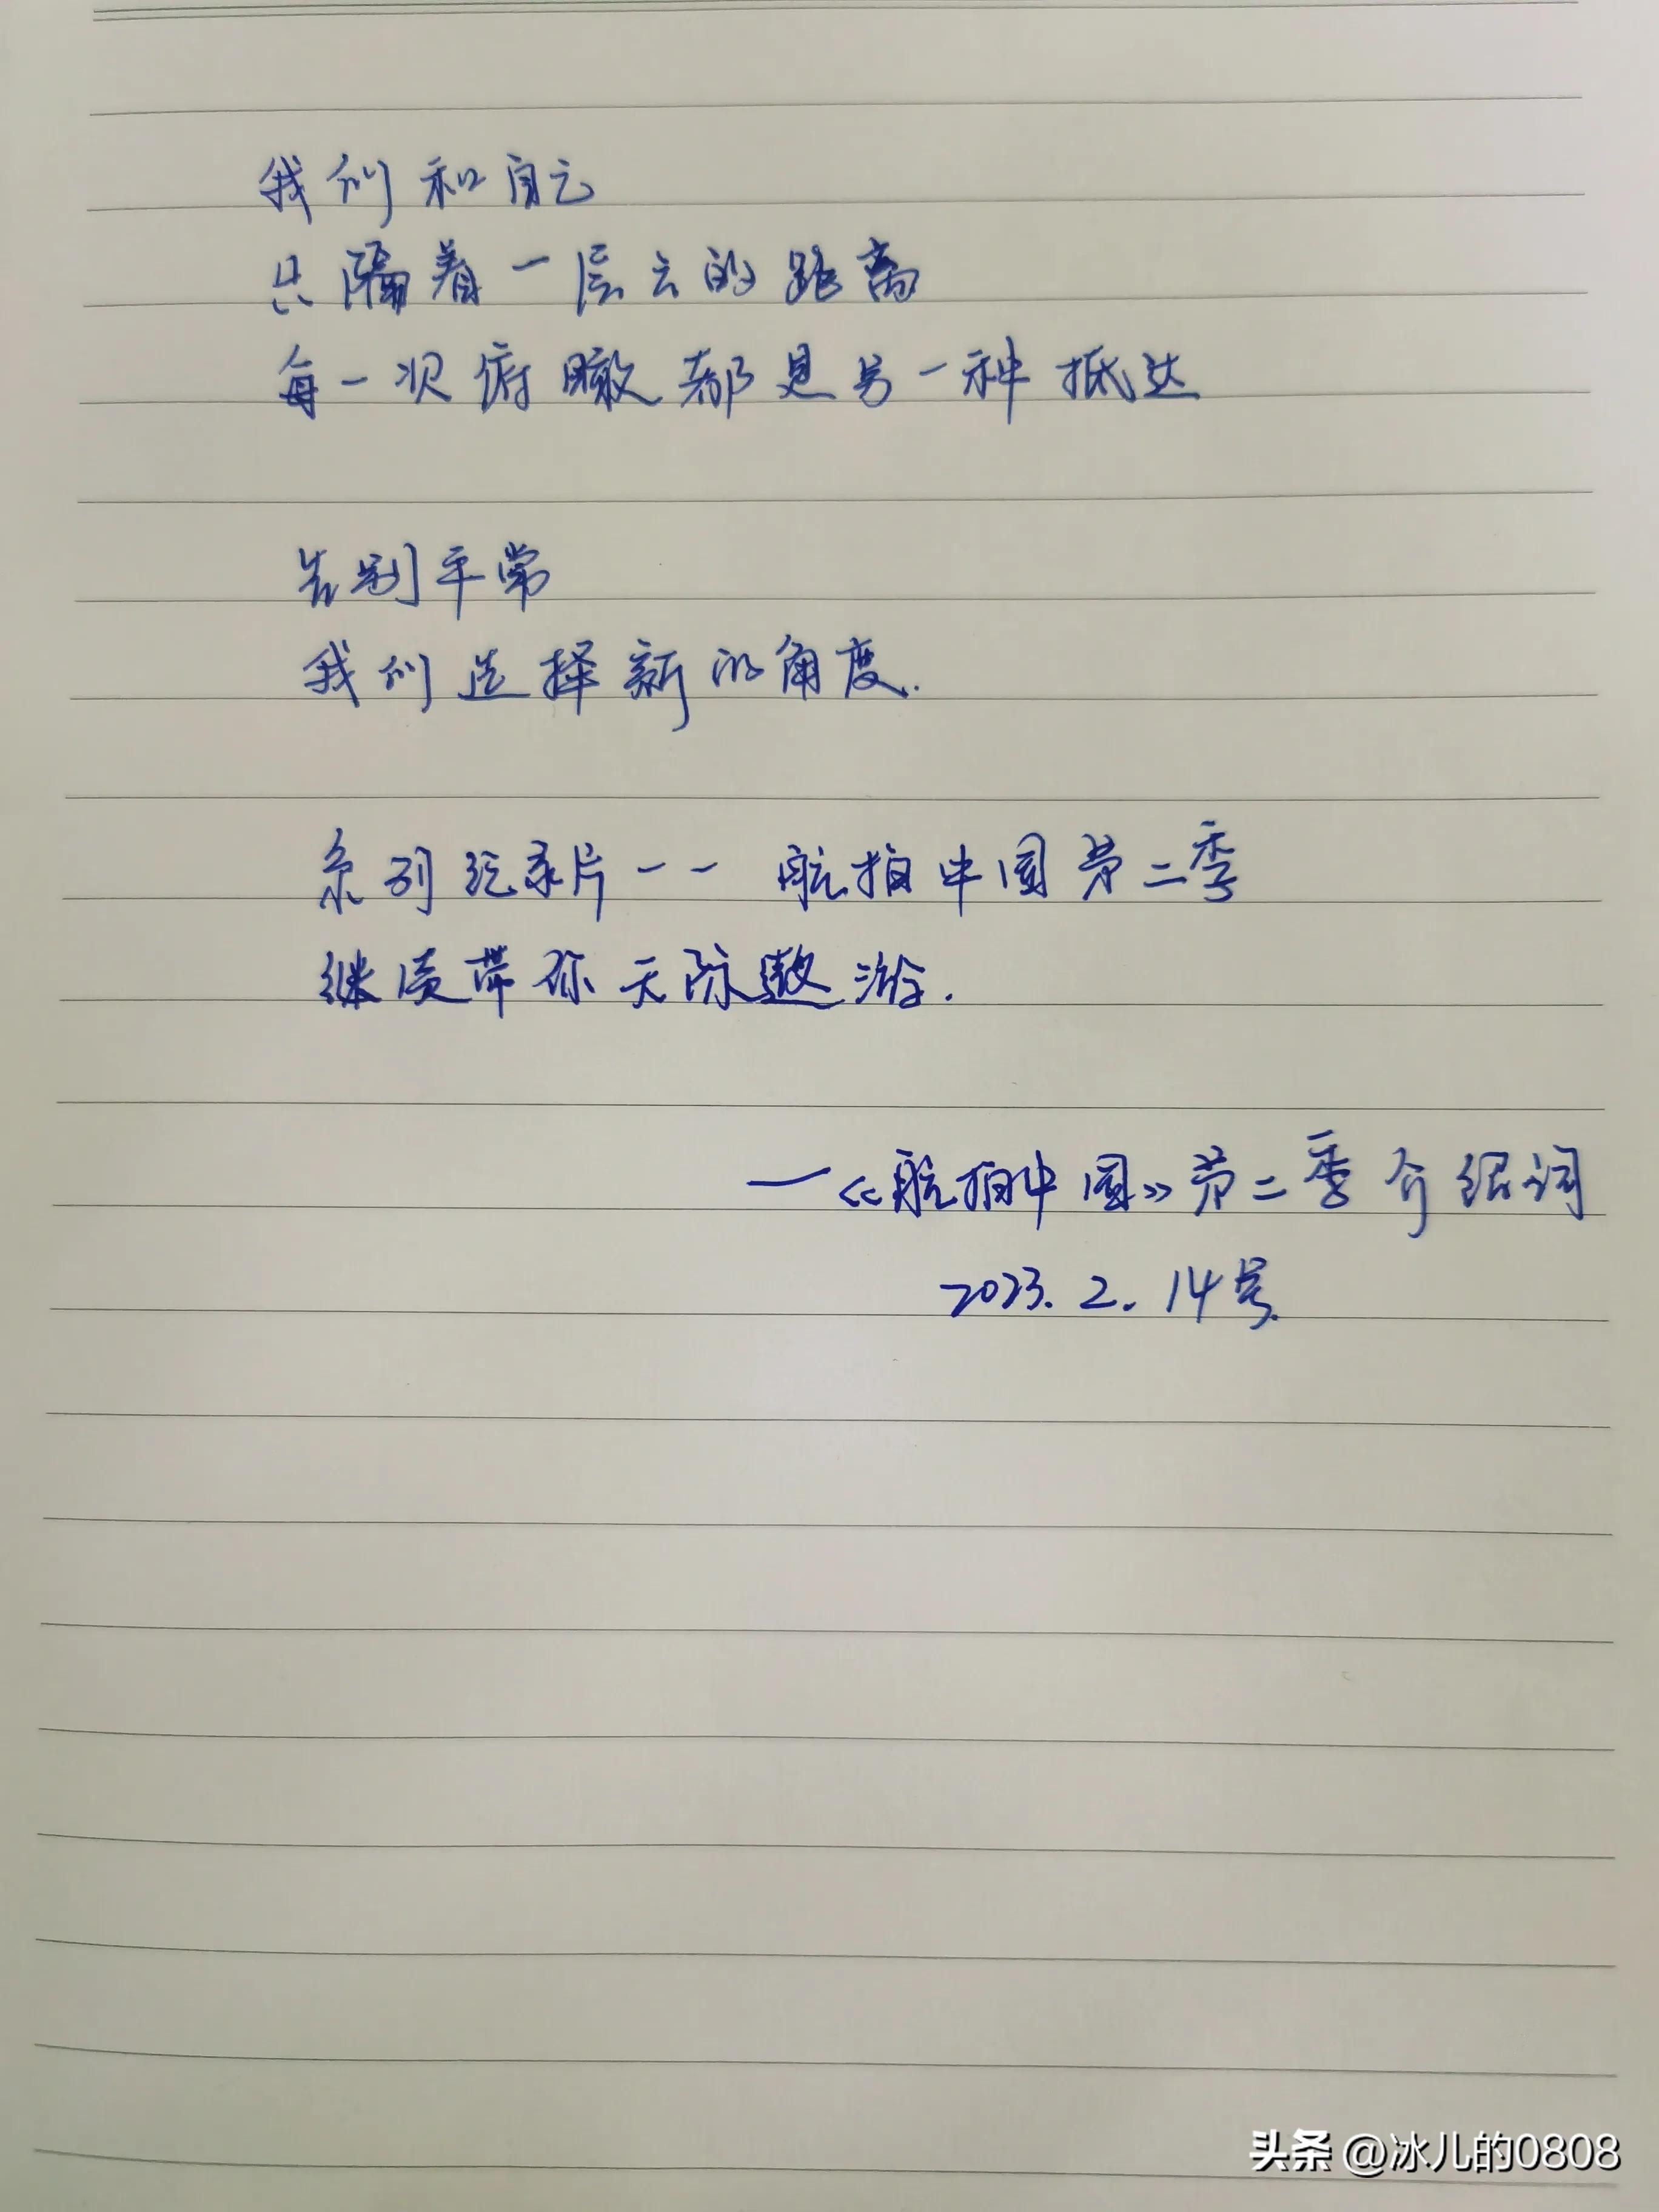 我们和自己
只隔着一层云的距离
每一次俯瞰都是另一种抵达
告别平常
我们选择新的角度.
系列纪录片一一航拍中国第二季
继续带你天际遨游.
一《航拍中国》第二季介绍词
2023.2.14号.
头条 @冰儿的0808